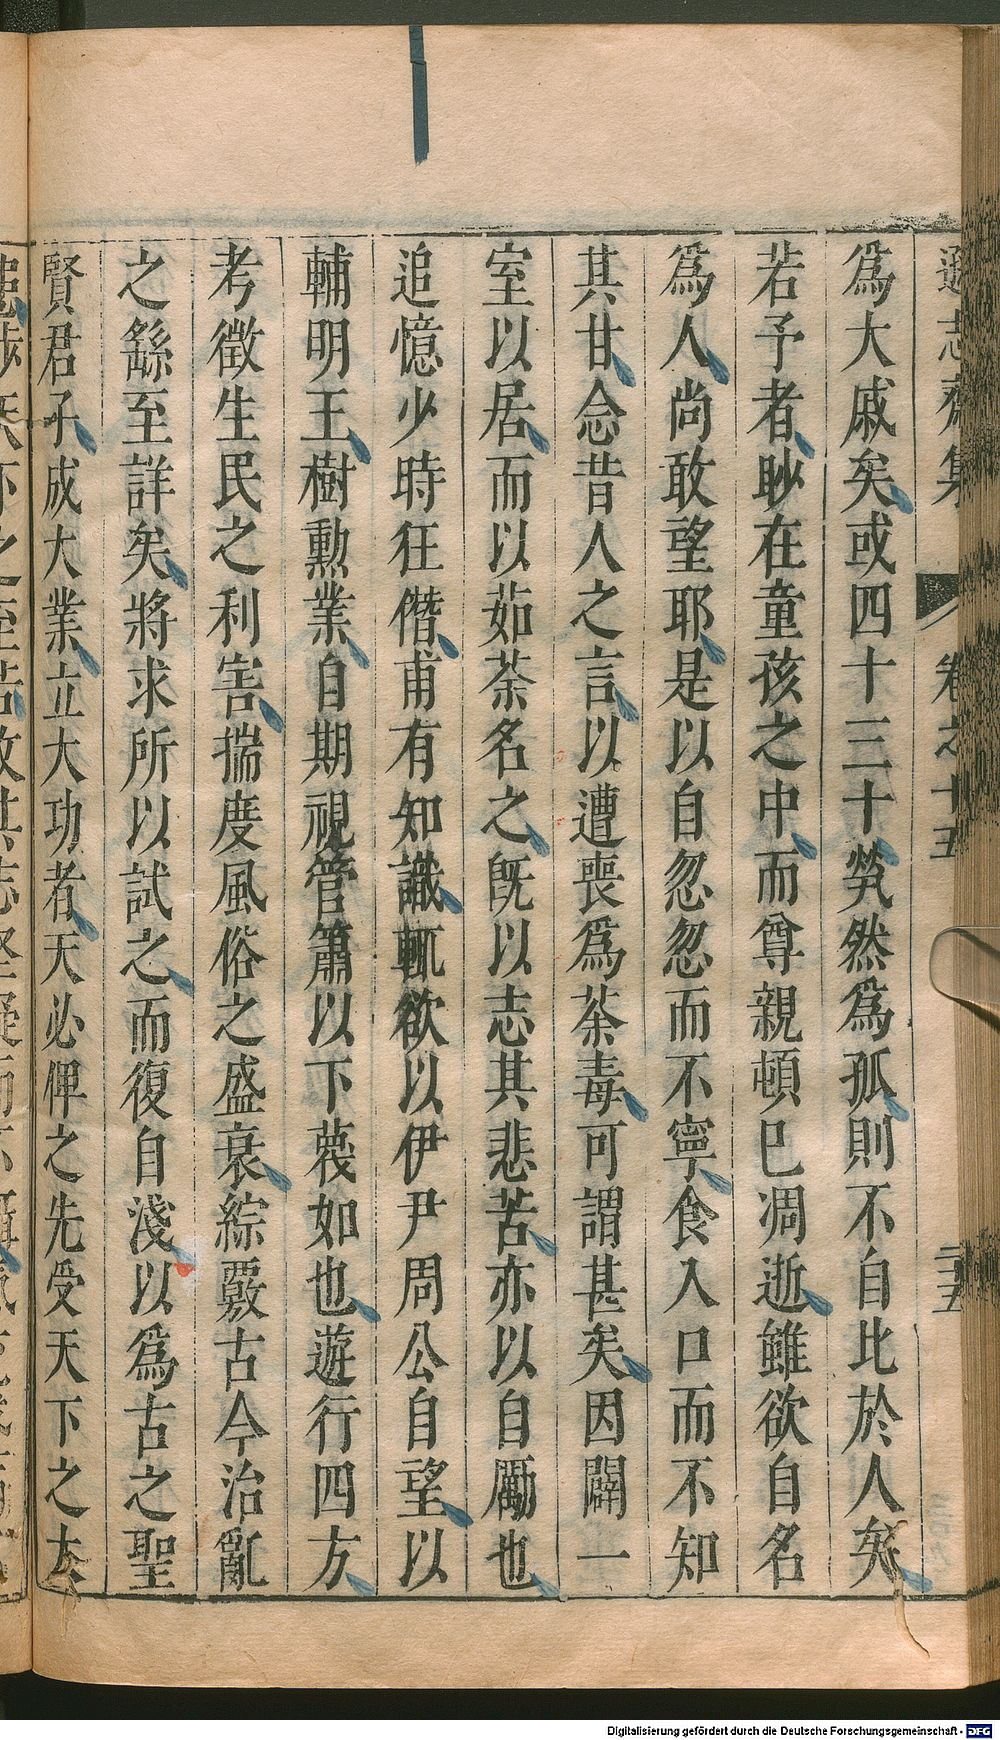 遜志齋集 卷之十五 二十五
爲大戚矣或四十三十煢然爲孤則不自比於人矣
若予者眇在童孩之中而尊親頓已凋逝雖欲自名
爲人尚敢望耶是以自忽忽而不寧食入口而不知
其甘念昔人之言以遭喪爲荼毒可謂甚矣因闢一
室以居而以茹荼名之旣以志其悲苦亦以自勵也
追憶少時狂僭甫有知識輒欲以伊尹周公自望以
輔明王樹勳業自期視管簫以下蔑如也遊行四方
考徵生民之利害揣度風俗之盛衰綜覈古今治亂
之繇至詳矣將求所以試之而復自淺以爲古之聖
賢君子成大業立大功者天必俾之先受天下之大
Digitalisierung gefördert durch die Deutsche Forschungsgemeinschaft - DFG